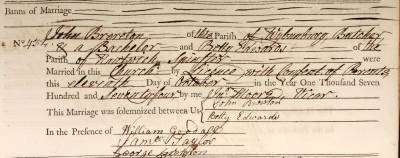 Banns of Marriage
John Brereton of this Parish of Wybunbury Butcher
No. 454 & a Bachelor and Betty Edwards of the
Parish of Nantwich Spinster were
Married in this Church by Licence with Consent of Parents
this Eleventh Day of October in the Year One Thousand Seven
Hundred and Seventy four by me Jno. Moore Vicar
This Marriage was solemnized between Us John Brereton
Betty Edwards
In the Presence of William
James Taylor
George